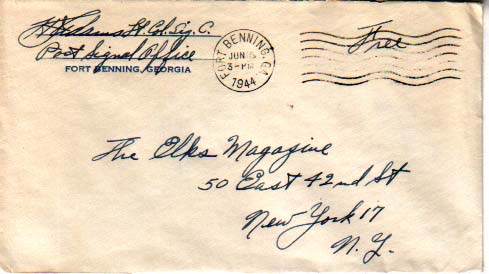 Adams Lt. Col. Sig. C.
Post Signal Office
FORT BENNING, GEORGIA
FORT BENNING, GA.
JUN
3-PM
1944
Free
The Elks Magazine
50 East 42nd St
New York 17
N. Y.